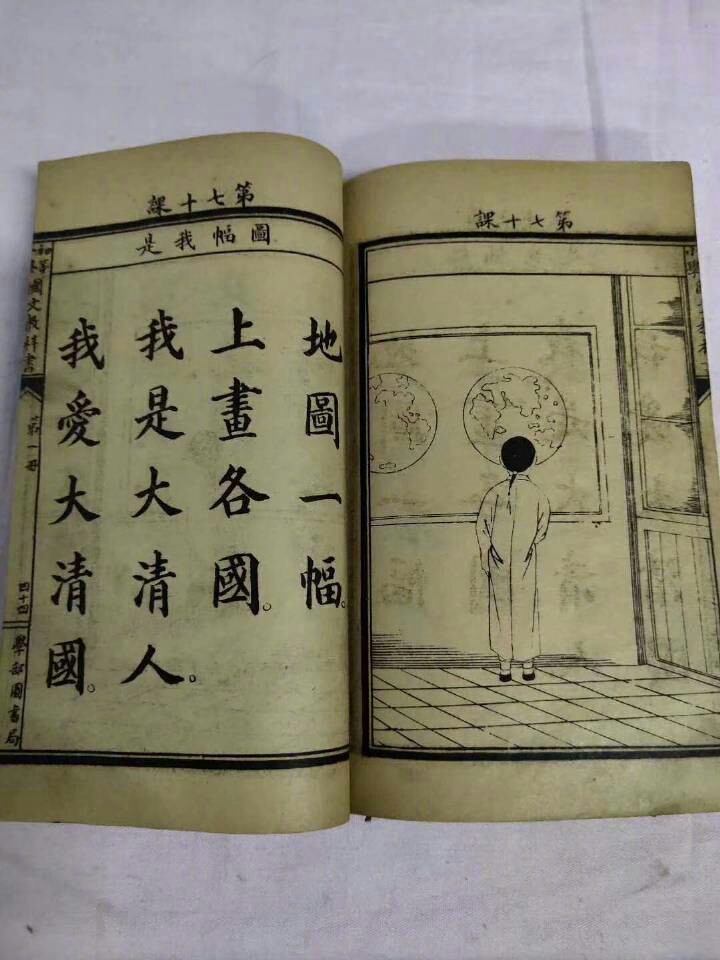 第七十課
第七十課
圖幅我是
地圖一幅。
上畫各國。
我是大清人。
我愛大清國。
初等國文教科書
第一冊
四十四
學部圖書局